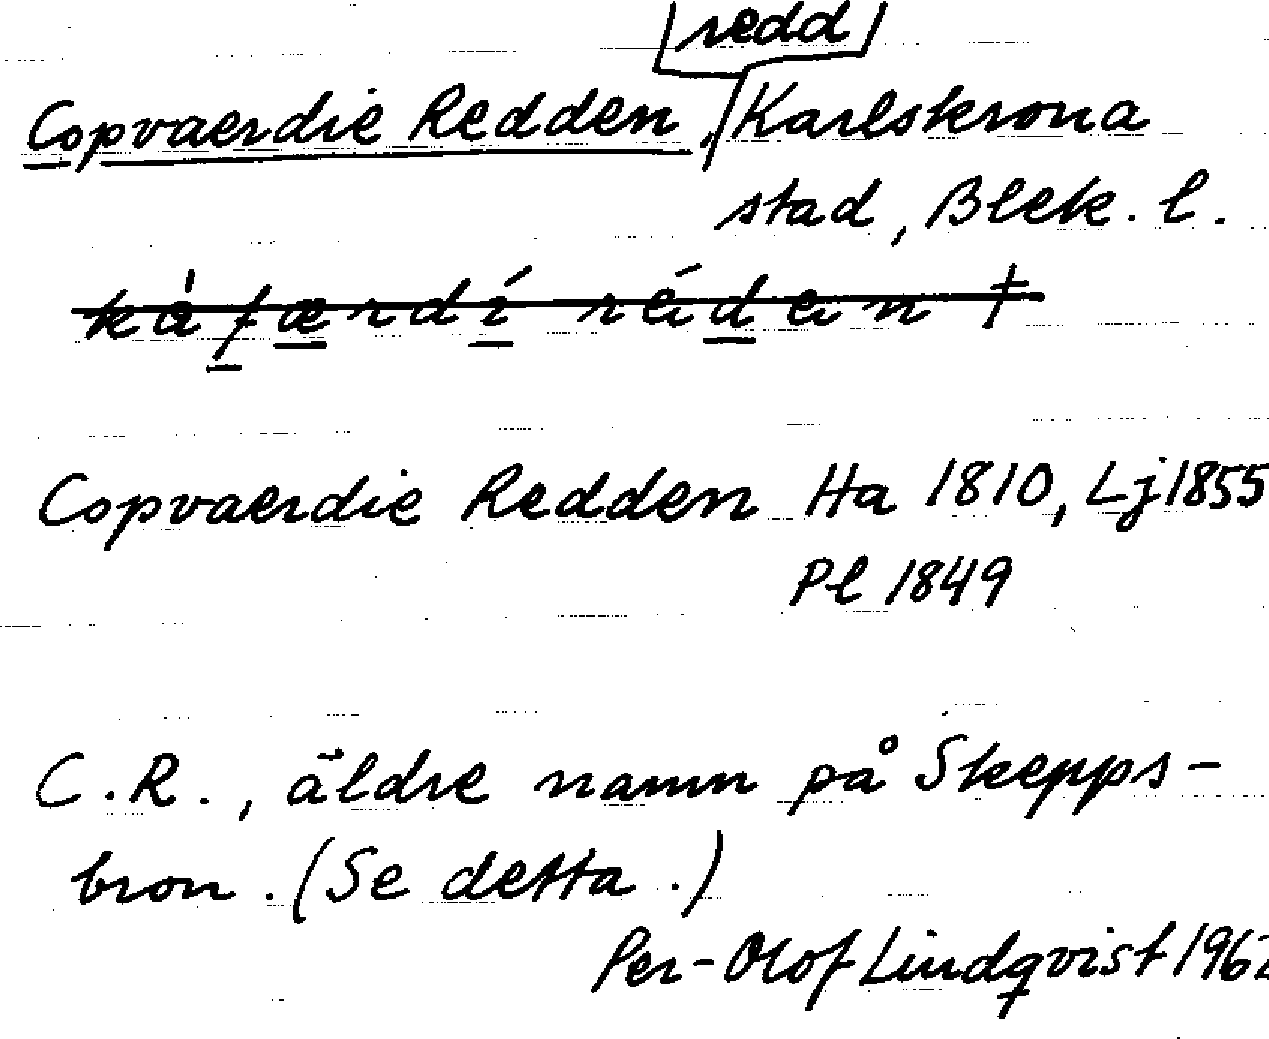 redd
Copvaerdie Redden, Karlskrona
stad, Blek. l.
Copvaerdie Redden Ha 1810, Lj 1855
Pl 1849
C.R., äldre namn på Skepps-
bron. (Se detta.)
Per-Olof Lindqvist 1962